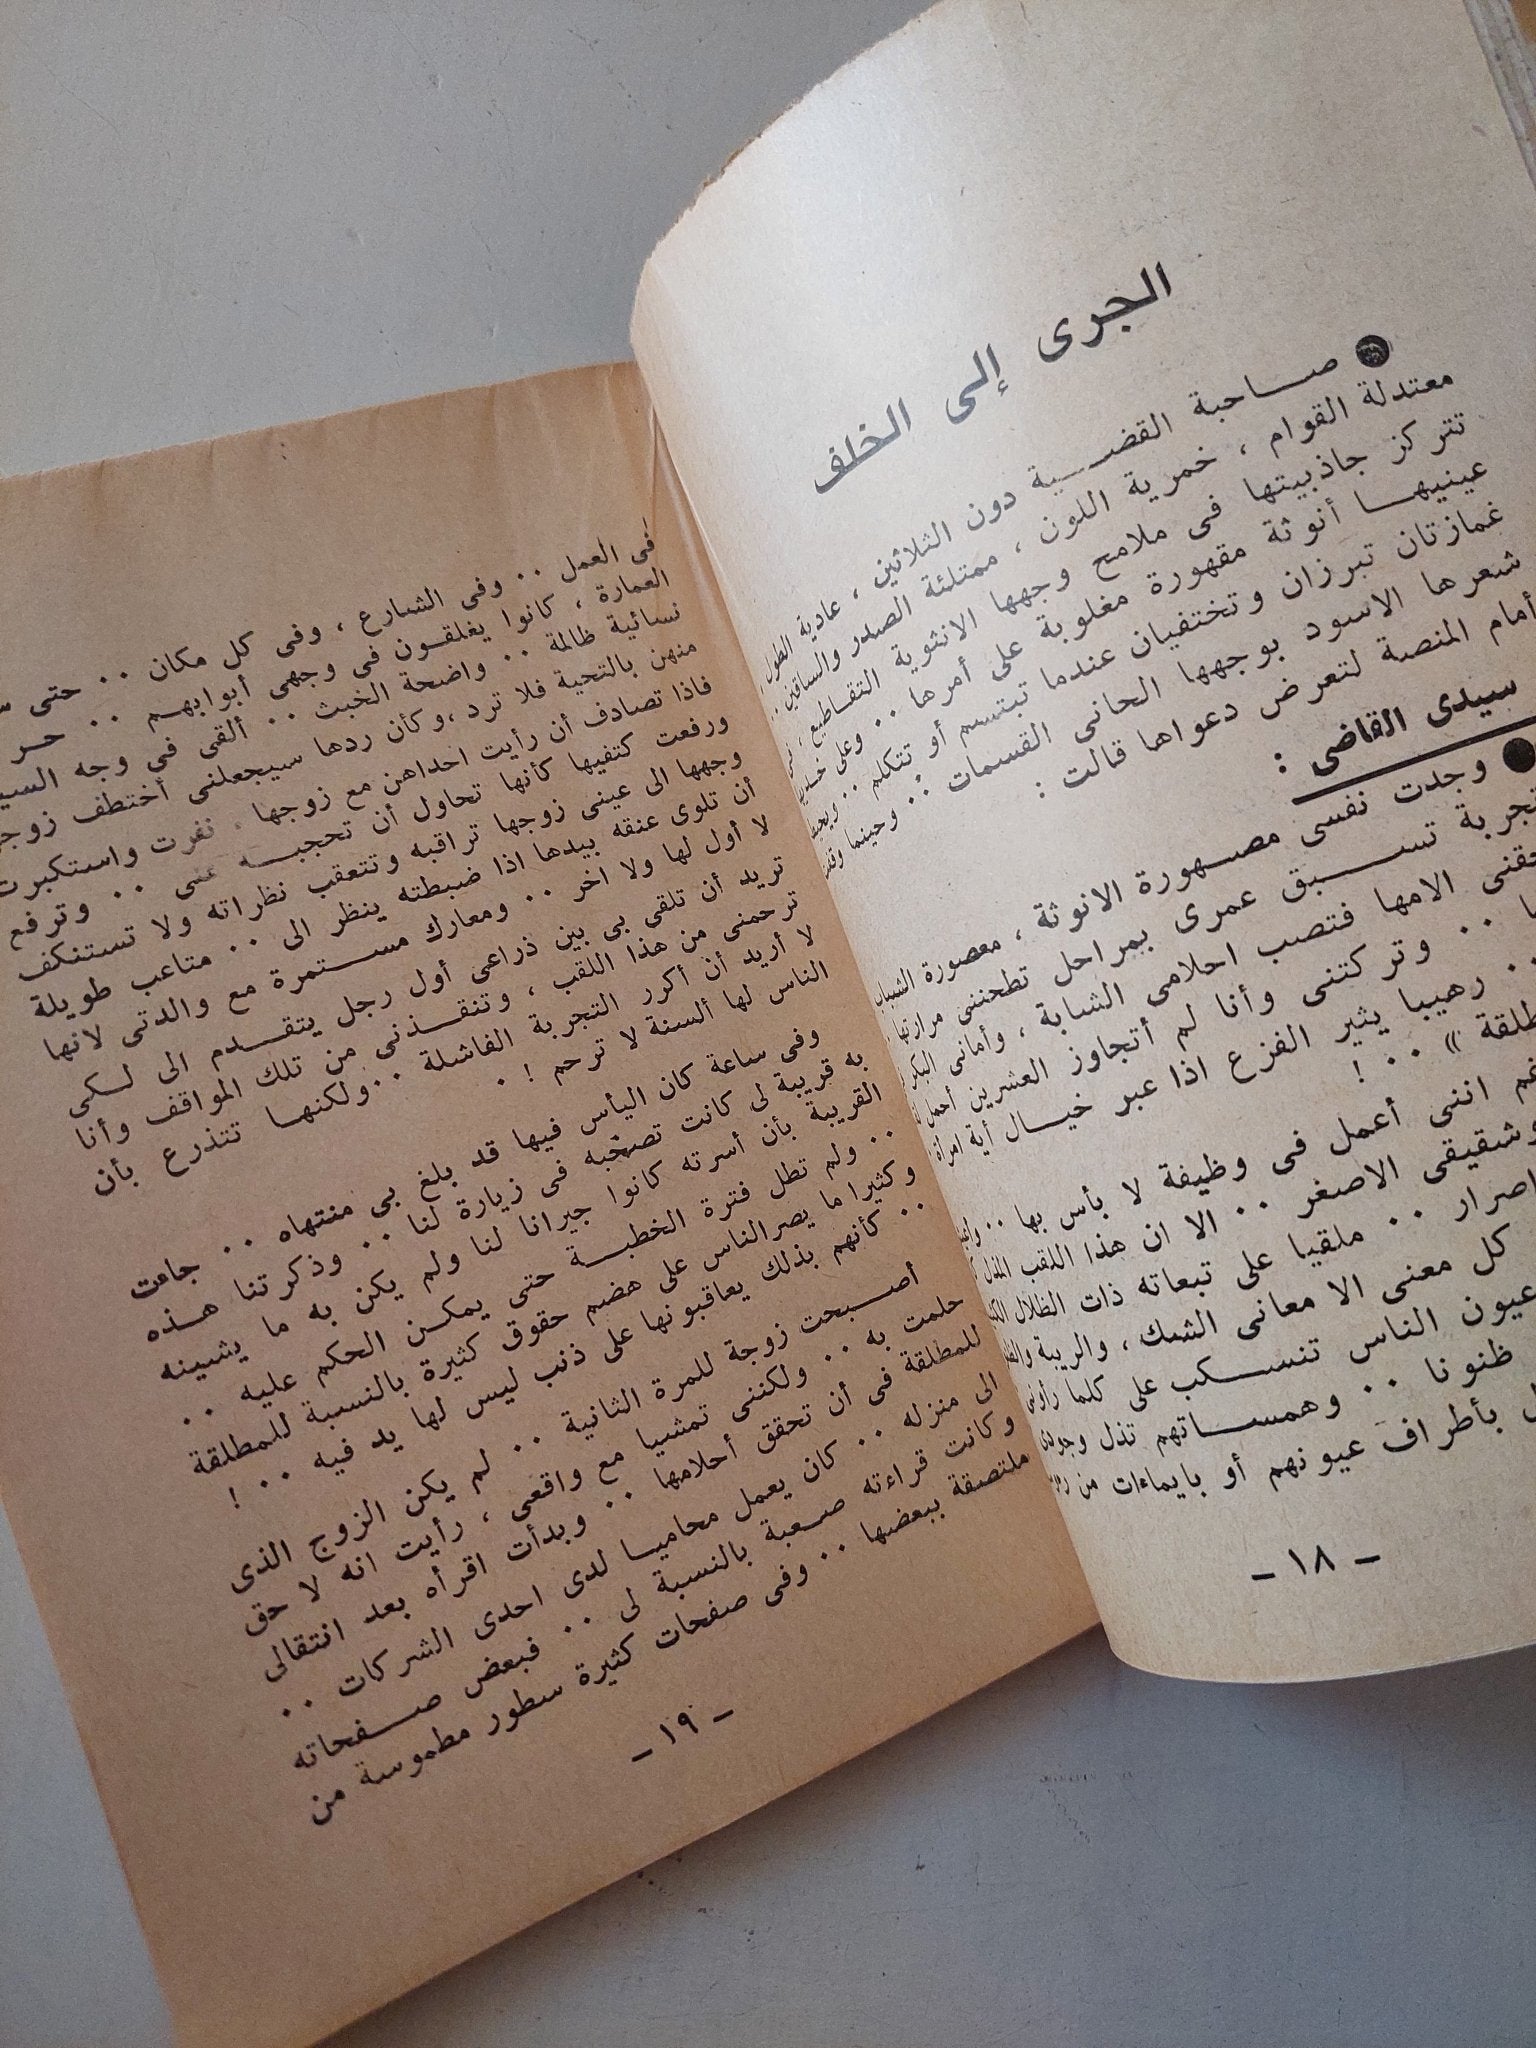 الجرى إلى الخلف
صاحبة القضية دون الثلاثين ، عادية الطول ،
معتدلة القوام ، خمرية اللون ، ممتلئة الصدر والساقين ..
تتركز جاذبيتها فى ملامح وجهها الانثوية التقاطيع ،
عينيها أنوثة مقهورة مغلوبة على أمرها .. وعلى
غمازتان تبرزان وتختفيان عندما تبتسم أو تتكلم ..
شعرها الاسود بوجهها الحانى القسمات .. وحينما وقفت
أمام المنصة لتعرض دعواها قالت :
سيدى القاضى :
وجدت نفسى مصهورة الانوثة ، معصورة الشباب
تجربة تسبق عمرى بمراحل تطحننى مرارتها
الامها فتصب احلامى الشابة ، وأمانى البكر
.. وتركتنى وأنا لم أتجاوز العشرين أحمل
.. رهيبا يثير الفزع اذا عبر خيال أية امرأة
» .. !
اننى أعمل فى وظيفة لا بأس بها ..
وشقيقى الاصغر .. الا ان هذا اللقب المذل
اصرار .. ملقيا على تبعاته ذات الظلال
كل معنى الا معانى الشك ، والريبة
عيون الناس تنسكب على كلما رأونى
ظنونا .. وهمساتهم تذل وجودى
بأطراف عيونهم أو بايماءات من
- ١٨ -
فى العمل .. وفى الشارع ، وفى كل مكان .. حتى
العمارة ، كانوا يغلقون فى وجهى أبوابهم ..
نسائية ظالمة .. واضحة الخبث .. ألقى فى وجه
منهن بالتحية فلا ترد ، وكأن ردها سيجعلنى أختطف
فاذا تصادف أن رأيت احداهن مع زوجها نفرت واستكبرت
ورفعت كتفيها كأنها تحاول أن تحجبه عنى .. وترفع
وجهها الى عينى زوجها تراقبه وتتعقب نظراته ولا تستنكف
أن تلوى عنقه بيدها اذا ضبطته ينظر الى .. متاعب طويلة
لا أول لها ولا اخر .. ومعارك مستمرة مع والدتى لانها
تريد أن تلقى بى بين ذراعى أول رجل يتقدم الى لكى
ترحمنى من هذا اللقب ، وتنقذنى من تلك المواقف وأنا
لا أريد أن أكرر التجربة الفاشلة .. ولكنها تتذرع بأن
الناس لها ألسنة لا ترحم ! .
وفى ساعة كان اليأس فيها قد بلغ بى منتهاه .. جاءت
به قريبة لى كانت تصحبه فى زيارة لنا .. وذكرتنا هذه
القريبة بأن أسرته كانوا جيرانا لنا ولم يكن به ما يشينه
.. ولم تطل فترة الخطبة حتى يمكن الحكم عليه ..
وكثيرا ما يصر الناس على هضم حقوق كثيرة بالنسبة للمطلقة
.. كأنهم بذلك يعاقبونها على ذنب ليس لها يد فيه .. !
أصبحت زوجة للمرة الثانية .. لم يكن الزوج الذى
حلمت به .. ولكننى تمشيا مع واقعى ، رأيت انه لا حق
للمطلقة فى أن تحقق أحلامها .. وبدأت اقرأه بعد انتقالى
الى منزله .. كان يعمل محاميا لدى احدى الشركات ..
وكانت قراءته صعبة بالنسبة لى .. فبعض صفحاته
ملتصقة ببعضها .. وفى صفحات كثيرة سطور مطموسة من
- ١٩ -